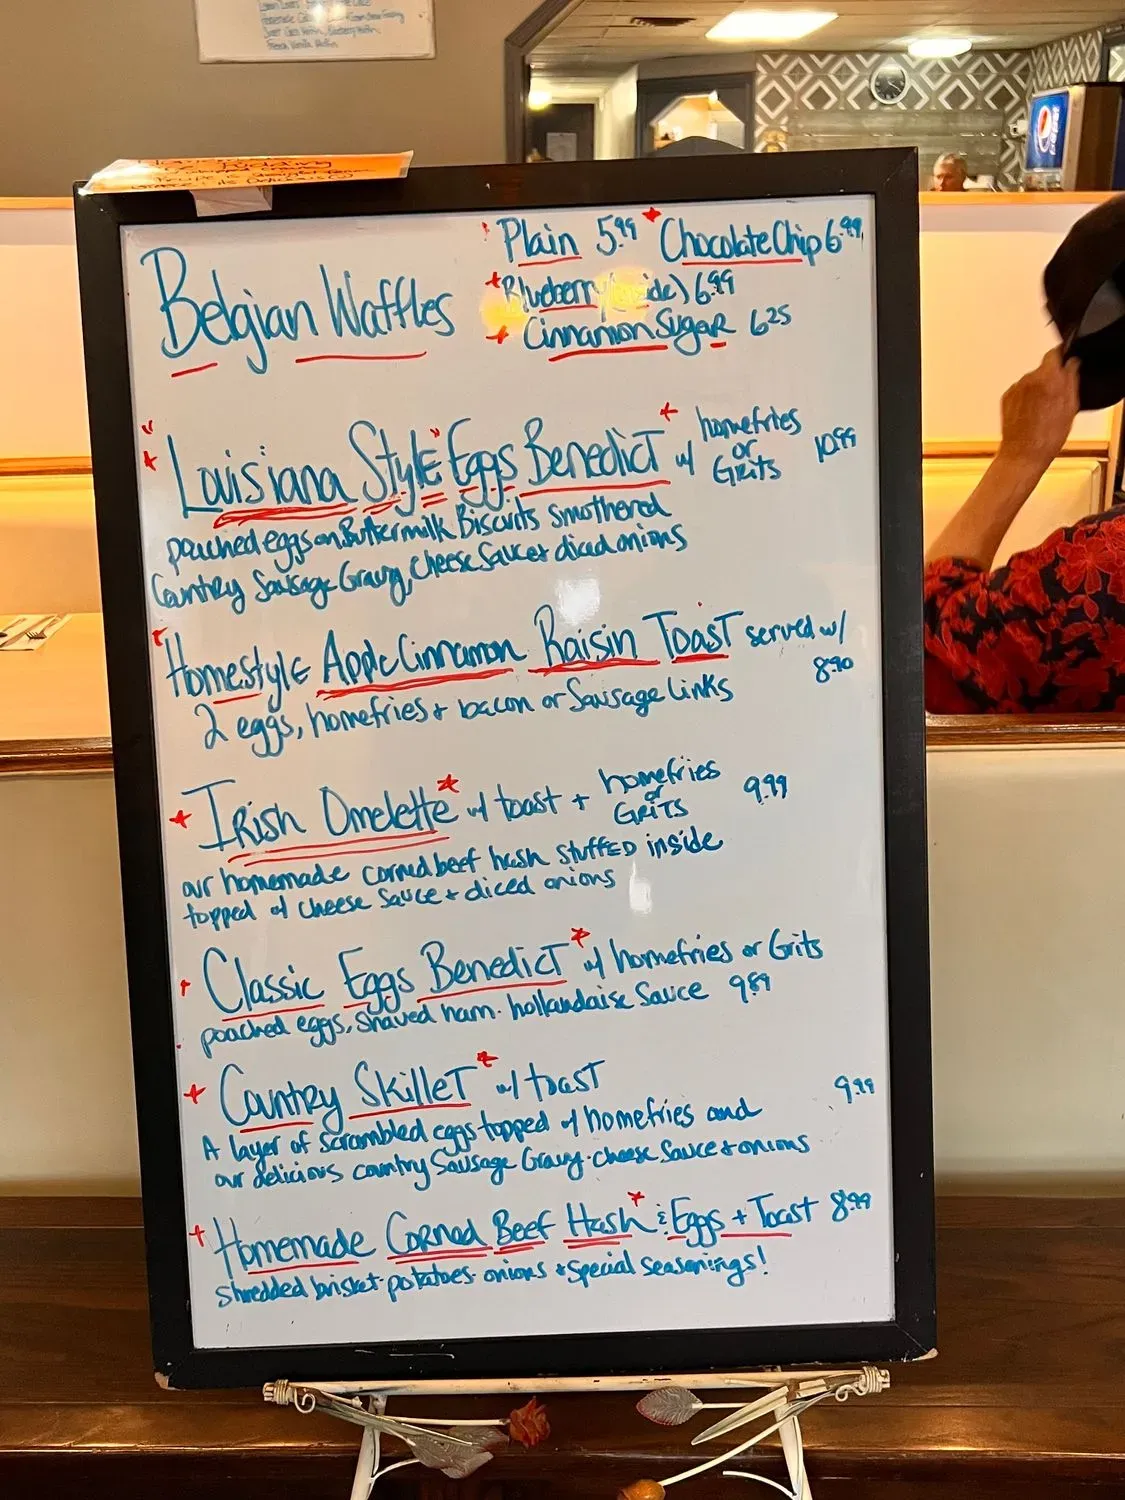 Sweet Corn Muffin, Blueberry Muffin
French Vanilla Muffin
Pudding
PEPSI
Plain 5.99 Chocolate Chip 6.99
Belgian Waffles
Blueberry 6.99
Cinnamon Sugar 6.25
"Louisiana Style" Eggs Benedict w/ homefries or Grits 10.99
poached eggs on Buttermilk Biscuits smothered
Country Sausage Gravy, Cheese Sauce + diced onions
Homestyle Apple Cinnamon Raisin Toast served w/
8.90
2 eggs, homefries + bacon or Sausage Links
Irish Omelette w/ toast + homefries or Grits 9.99
our homemade corned beef hash stuffed inside
topped w/ cheese sauce + diced onions
Classic Eggs Benedict w/ homefries or Grits
poached eggs, shaved ham. hollandaise Sauce 9.89
Country Skillet w/ toast 9.99
A layer of scrambled eggs topped w/ homefries and
our delicious country Sausage Gravy. cheese sauce + onions
Homemade Corned Beef Hash & Eggs + Toast 8.99
shredded brisket. potatoes. onions + special seasonings!